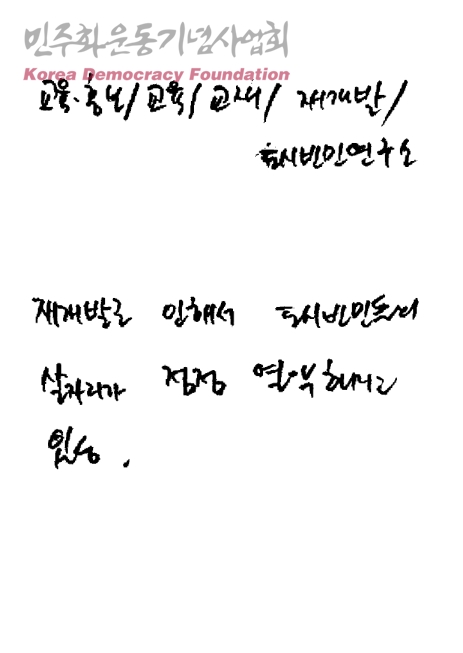 민주화운동기념사업회
Korea Democracy Foundation
교육·홍보/교육/교재/ 재개발/
도시빈민연구소
재개발로 인해서 도시빈민들의
살자리가 점점 열악해지고
있음.